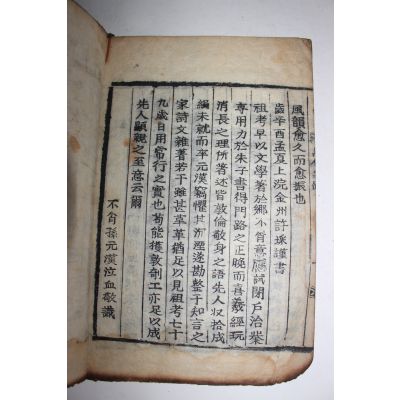 風韻愈久而愈振也
歲辛酉孟夏上浣金州許珠謹書
祖考早以文學著於鄉不肯意應試閉戶治業
專用力於朱子書得門路之正晚而喜羲經玩
消長之理所著述皆敦倫敬身之語先人收拾成
編未就而卒元漢竊懼其湮遂勘整于知言之
家詩文雜著若干雖甚草草猶足以見祖考七十
九歲日用常行之實也苟能獲敦劑工亦足以成
先人顯親之至意云爾
不肖孫元漢泣血敬識